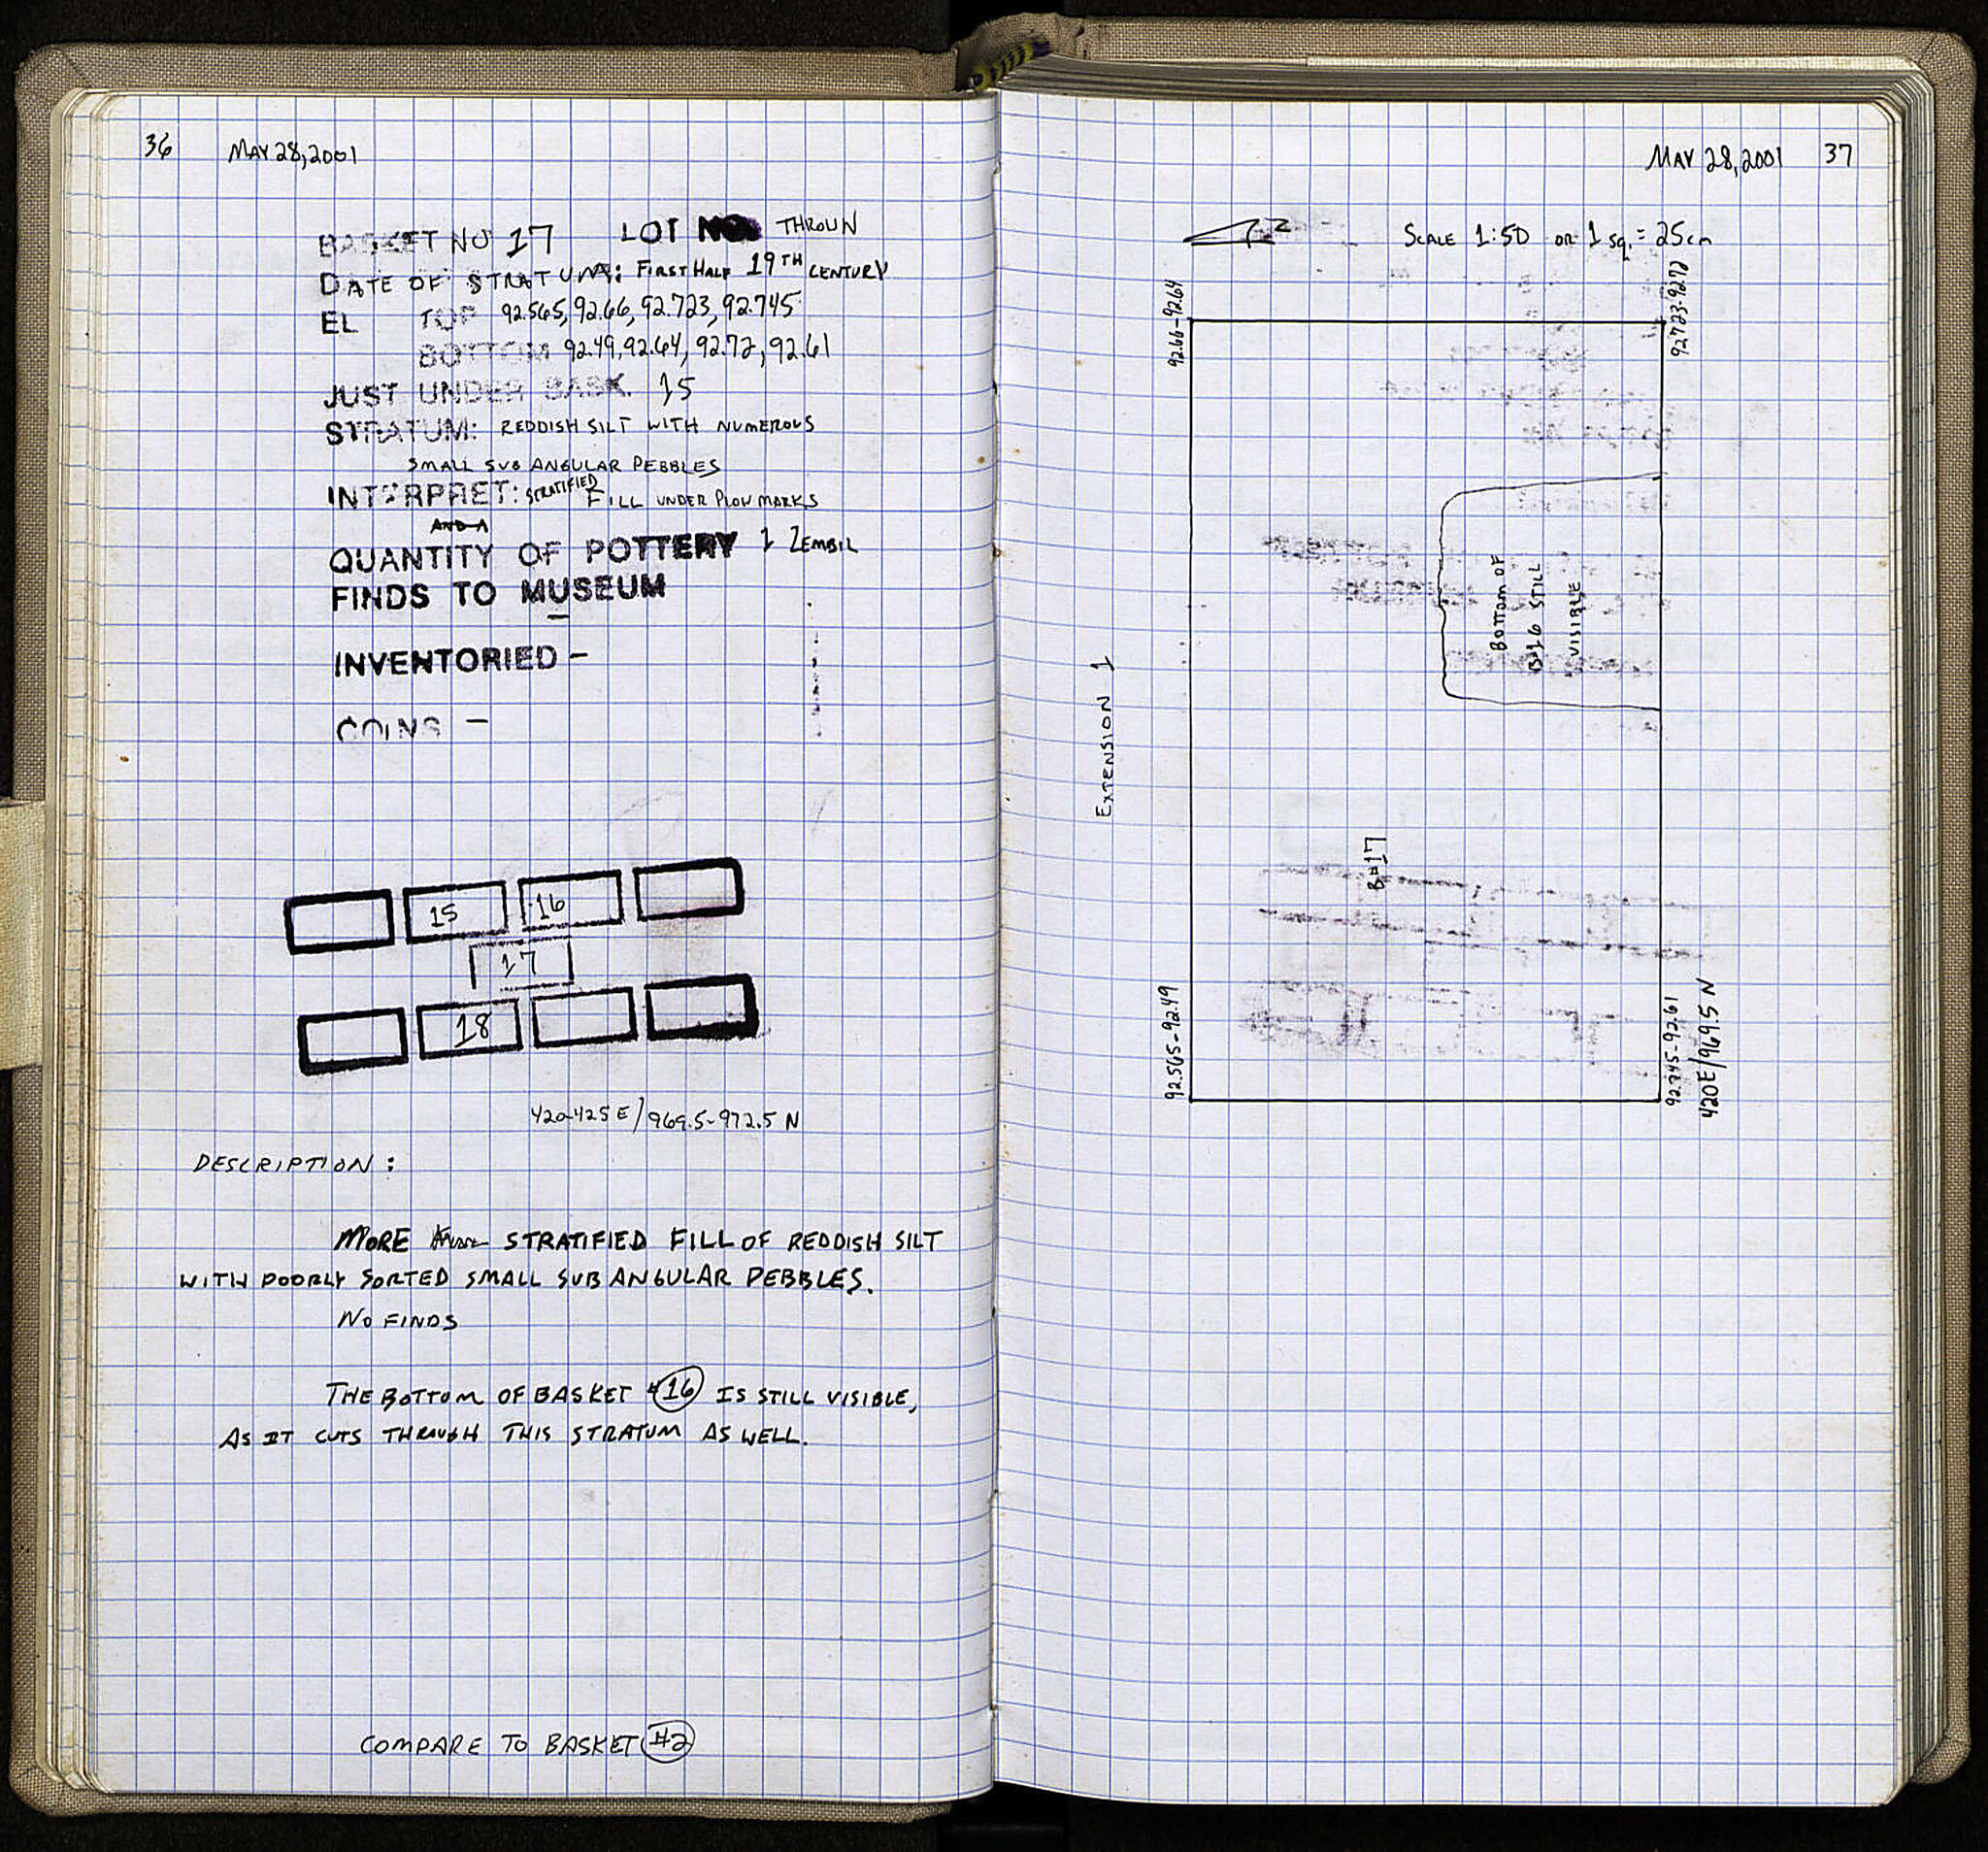 36 MAY 28, 2001
BASKET NO 17 LOT NO. THROWN
DATE OF STRATUM: FIRST HALF 19TH CENTURY
EL TOP 92.565, 92.66, 92.723, 92.745
BOTTOM 92.49, 92.64, 92.72, 92.61
JUST UNDER BASK. 15
STRATUM: REDDISH SILT WITH NUMEROUS
SMALL SUB ANGULAR PEBBLES
INTERPRET: STRATIFIED FILL UNDER PLOW MARKS
AND A
QUANTITY OF POTTERY 1 ZEMBIL
FINDS TO MUSEUM
–
INVENTORIED –
COINS –
15 16
17
18
420-425 E / 969.5-972.5 N
DESCRIPTION:
MORE STRATIFIED FILL OF REDDISH SILT
WITH POORLY SORTED SMALL SUB ANGULAR PEBBLES.
NO FINDS
THE BOTTOM OF BASKET #16 IS STILL VISIBLE,
AS IT CUTS THROUGH THIS STRATUM AS WELL.
COMPARE TO BASKET #2
MAY 28, 2001 37
N SCALE 1:50 OR 1 SQ. = 25cm
92.66-92.64
92.723-92.72
BOTTOM OF
B#16 STILL
VISIBLE
EXTENSION 1
B#17
92.565-92.49
92.745-92.61
420E/969.5 N